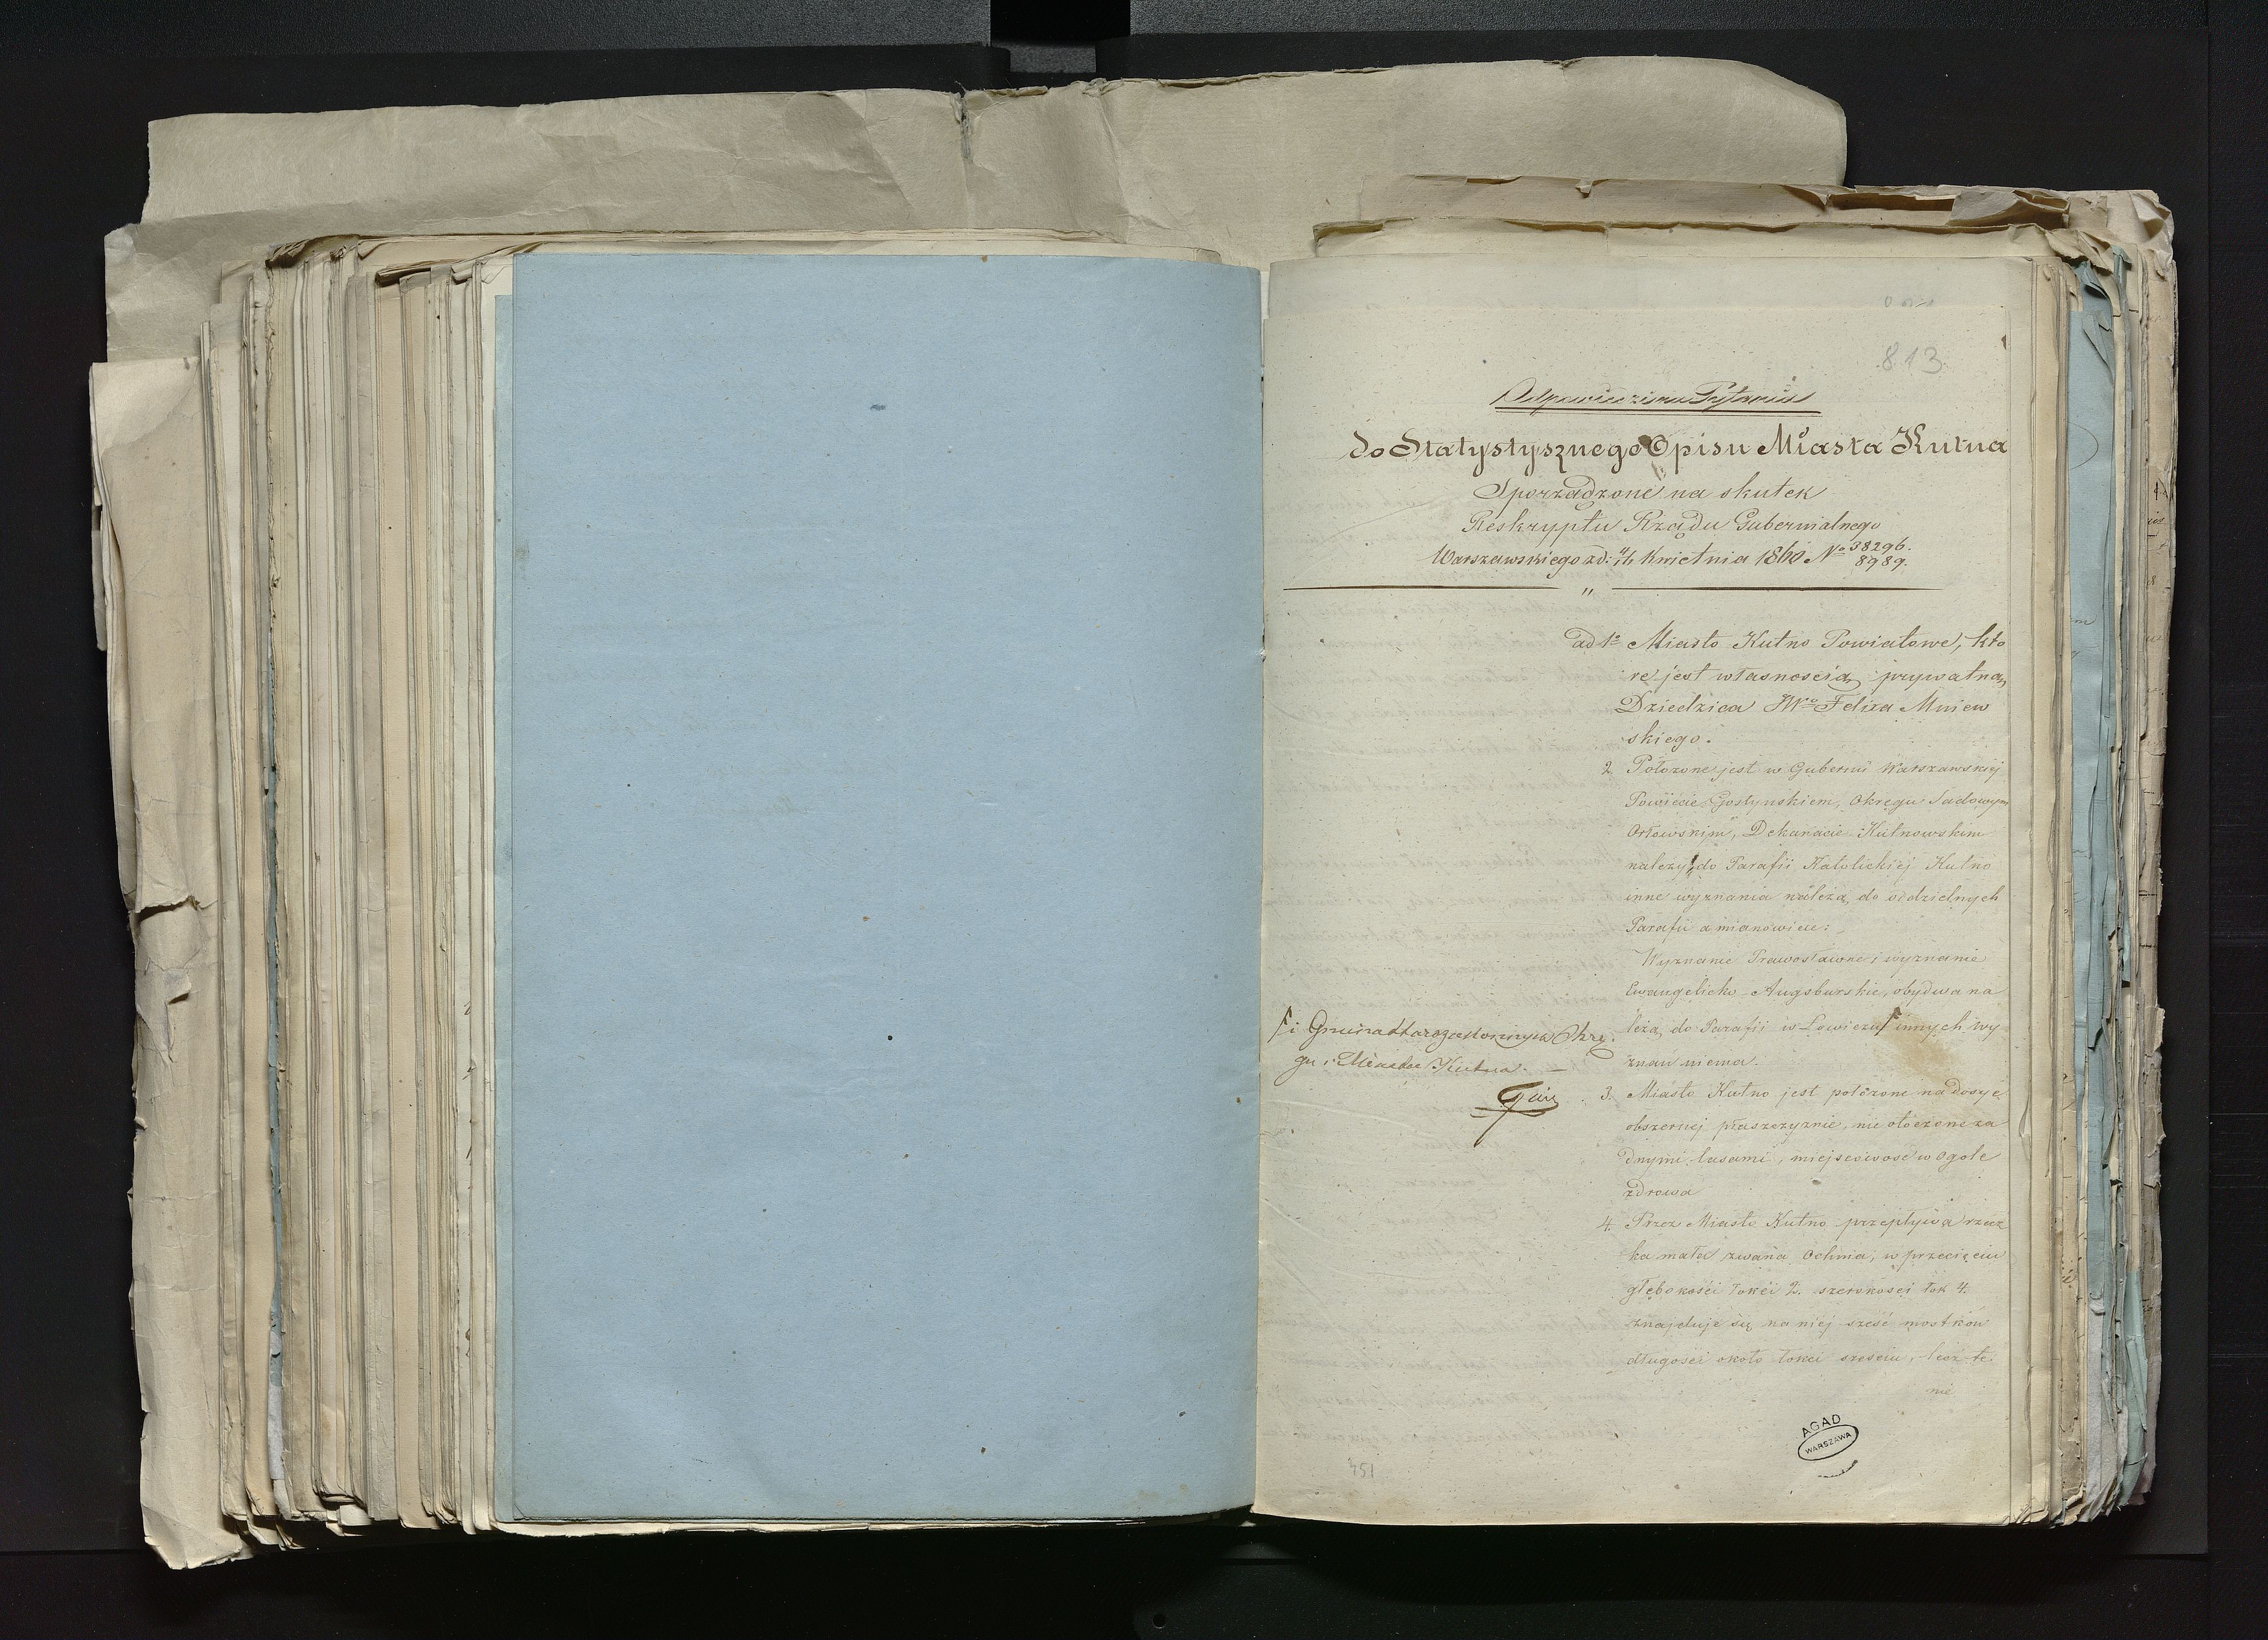 813
Odpowiedzi na Pytania
do Statystysznego Opisu Miasta Kutna
Sporządzone na skutek
Reskryptu Rządu Gubernialnego
Warszawskiego z d: 4/16 Kwietnia 1860 No 38296.
8989.
"
ad 1o Miasto Kutno Powiatowe, kto
re jest własnością prywatną
Dziedzica JWo Felixa Mniew
skiego.
2 Położone jest w Gubernii Warszawskiej
Powiecie Gostynskiem, Okręgu Sadowym
Orłowskim, Dekanacie Kutnowskim
należy do Parafii Katolickiej Kutno
inne wyznania należą do oddzielnych
Parafii a mianowicie:
Wyznanie Prawosławne i wyznanie
Ewangelicko-Augsburskie, obydwa na
leżą do Parafii w Łowiczu innych wy
znań niema.
i Gmina Starozakonnych Okrę
gu: Miasta Kutna. —
3. Miasto Kutno jest położone na dosyć
obszernej płaszczyznie, nie otoczone ża
dnymi lasami, miejscowość w ogole
zdrowa
4. Przez Miasto Kutno przepływa rzecz
ka mała zwana Ochnia, w przecięciu
głębokości łokci 2. szerokości łok 4.
znajduje się na niej sześć mostków
długości około łokci sześciu, lecz te
nie
AGAD
WARSZAWA
451